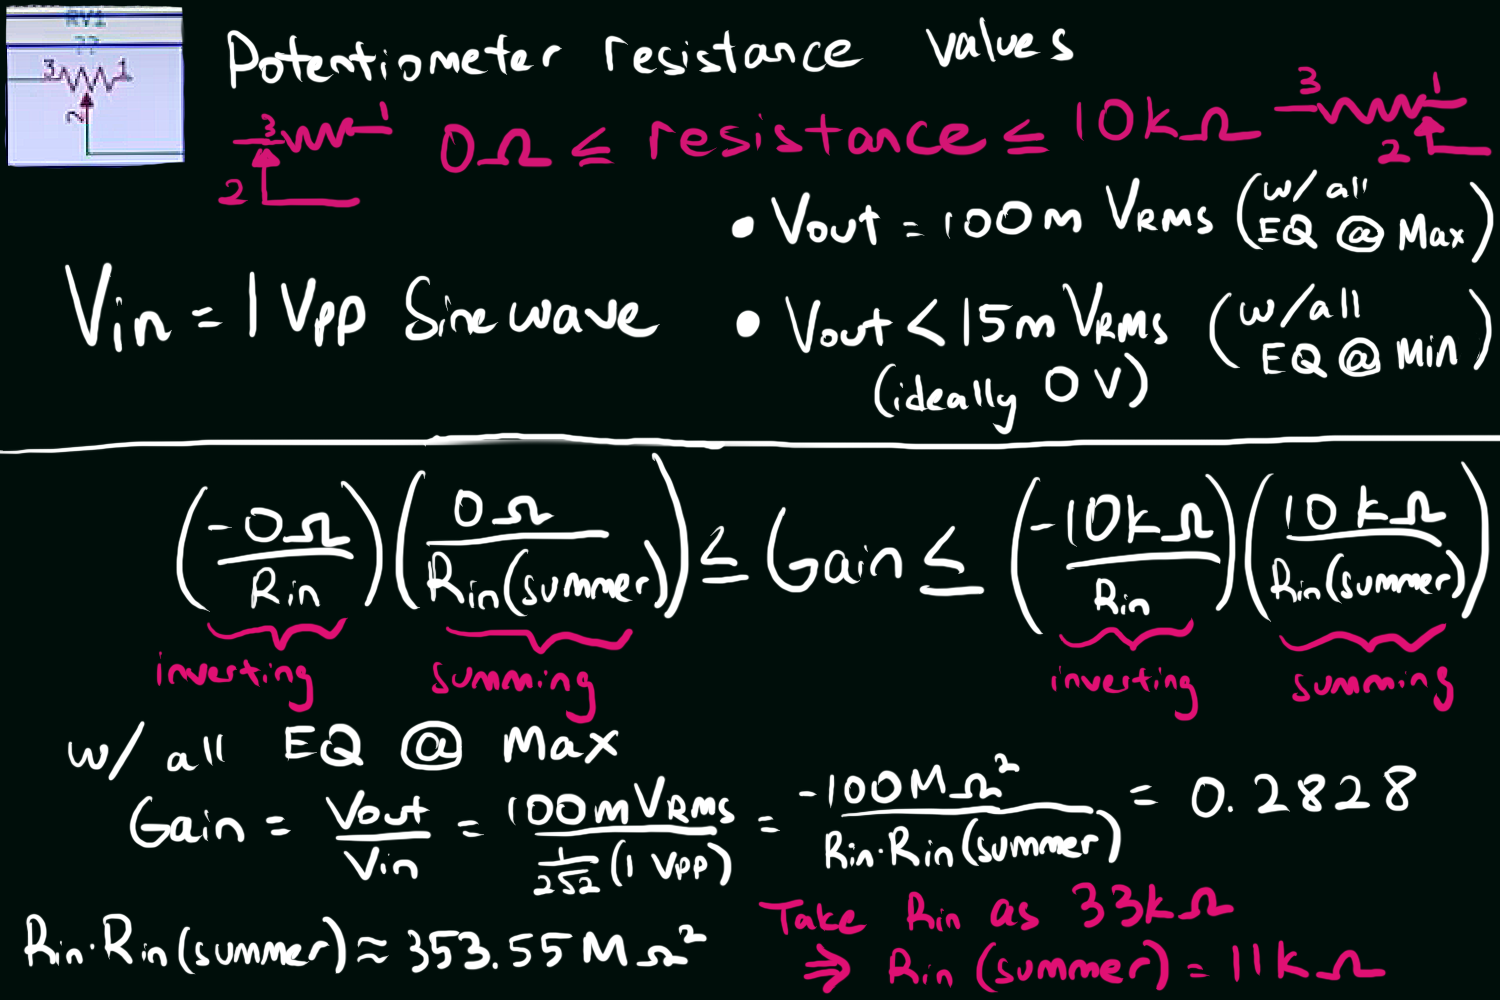 RV1
??
3 1
2
Potentiometer resistance values
3 1
2
0Ω ≤ resistance ≤ 10kΩ
3 1
2
• Vout = 100m VRMS (w/ all EQ @ Max)
Vin = 1 Vpp Sine wave
• Vout < 15m VRMS (w/ all EQ @ Min)
(ideally 0 V)
(-0Ω / Rin)(0Ω / Rin(summer)) ≤ Gain ≤ (-10kΩ / Rin)(10kΩ / Rin(summer))
inverting summing inverting summing
w/ all EQ @ Max
Gain = Vout / Vin = 100mVRMS / (1/2√2 (1 Vpp)) = -100MΩ² / Rin·Rin(summer) = 0.2828
Rin·Rin(summer) ≈ 353.55MΩ²
Take Rin as 33kΩ
⇒ Rin (summer) = 11kΩ